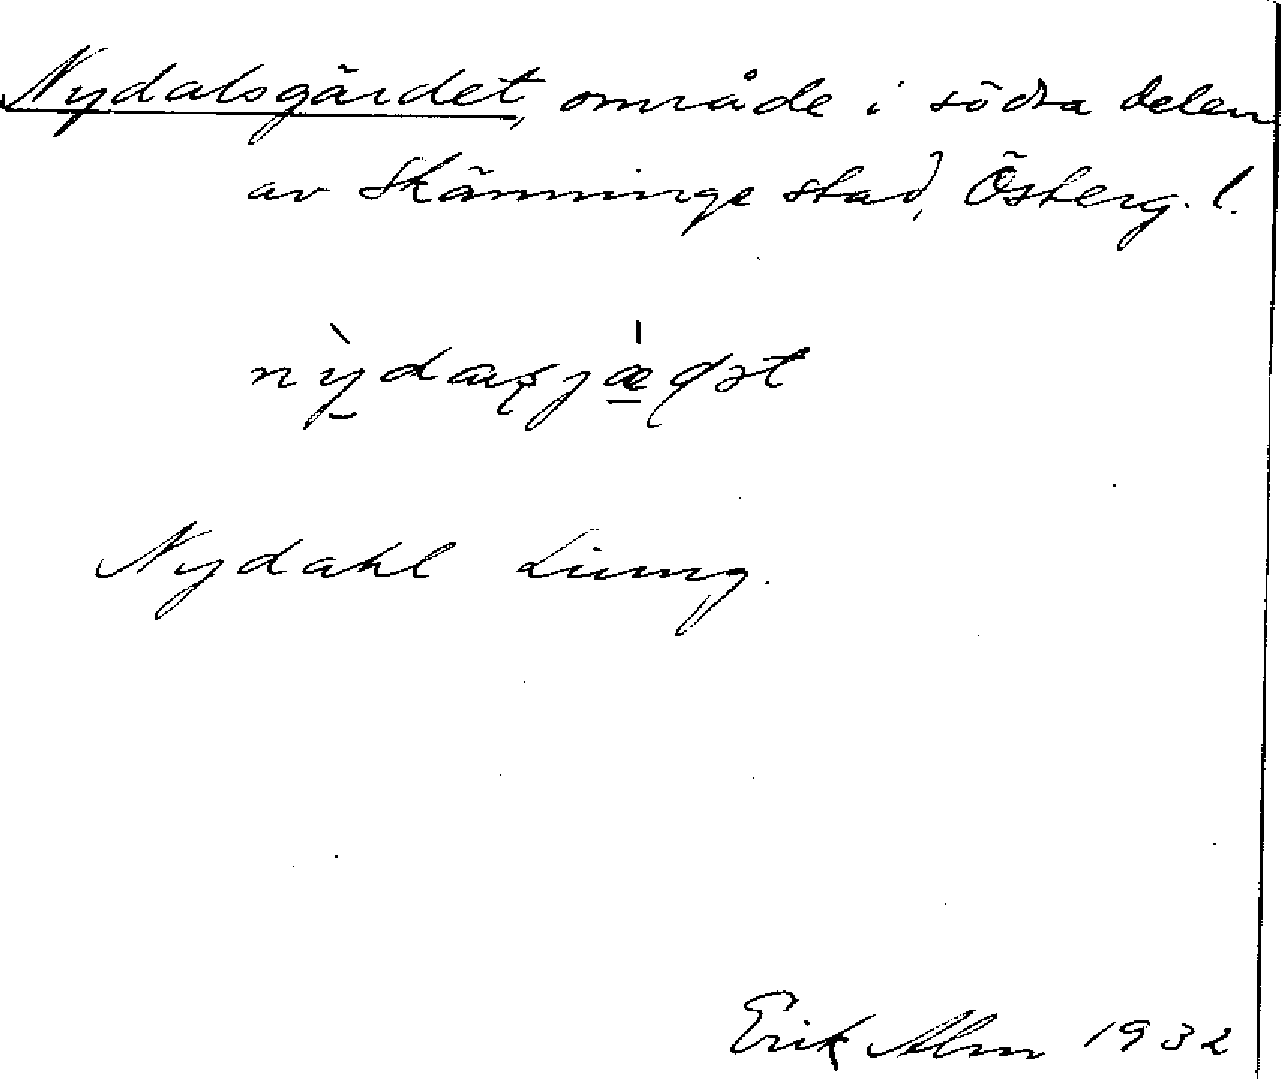 Nydalsgärdet, område i södra delen
av Skänninge stad, Österg. l.
Nydahl Ljung.
Erik Alm 1932